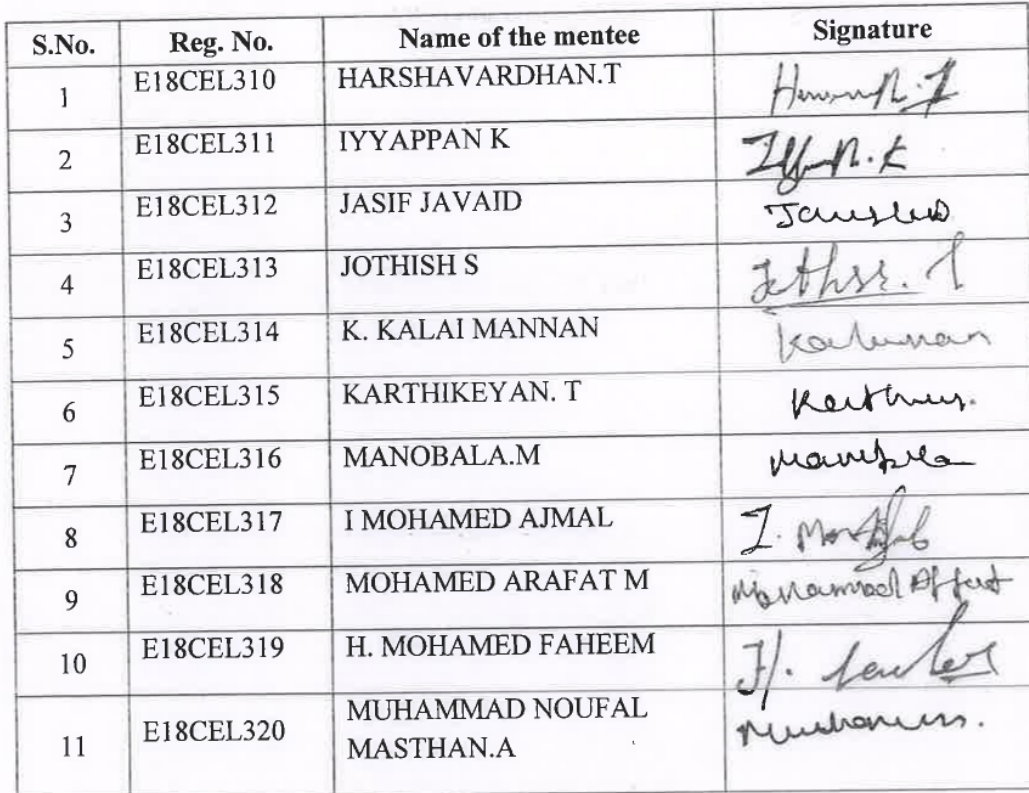 S.No. Reg. No. Name of the mentee Signature
1 E18CEL310 HARSHAVARDHAN.T
2 E18CEL311 IYYAPPAN K
3 E18CEL312 JASIF JAVAID
4 E18CEL313 JOTHISH S
5 E18CEL314 K. KALAI MANNAN
6 E18CEL315 KARTHIKEYAN. T
7 E18CEL316 MANOBALA.M
8 E18CEL317 I MOHAMED AJMAL
9 E18CEL318 MOHAMED ARAFAT M
10 E18CEL319 H. MOHAMED FAHEEM
11 E18CEL320 MUHAMMAD NOUFAL
MASTHAN.A